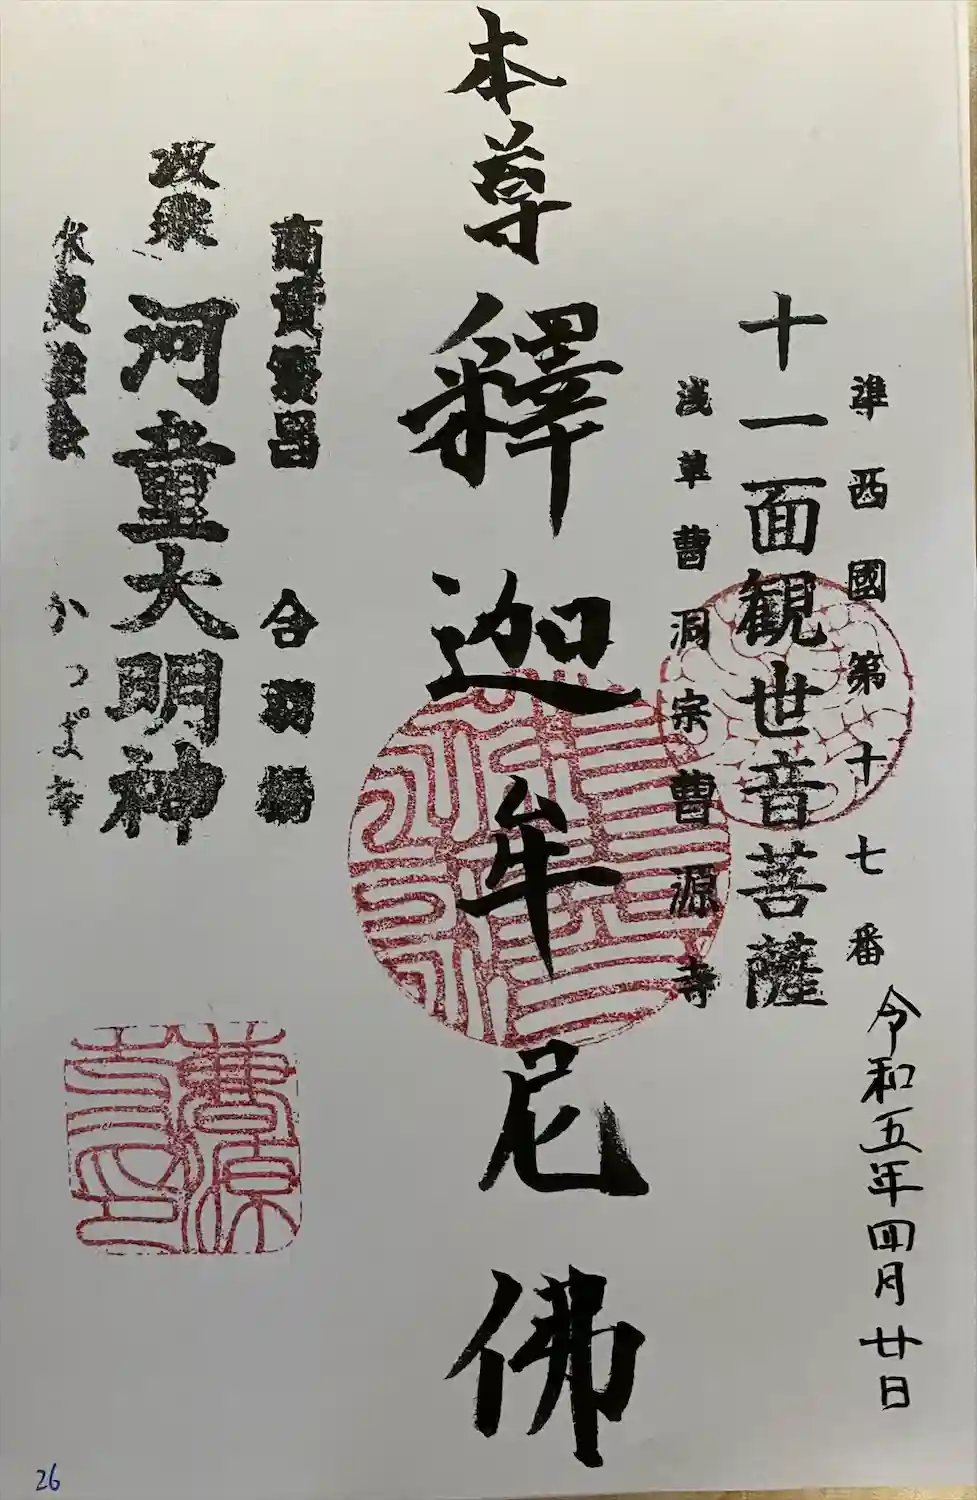 準西國第十七番
令和五年四月廿日
十一面観世音菩薩
浅草曹洞宗曹源寺
本尊
釋迦牟尼佛
商賣繁昌
合羽橋
河童大明神
水難
かっぱ寺
曹源寺印
26